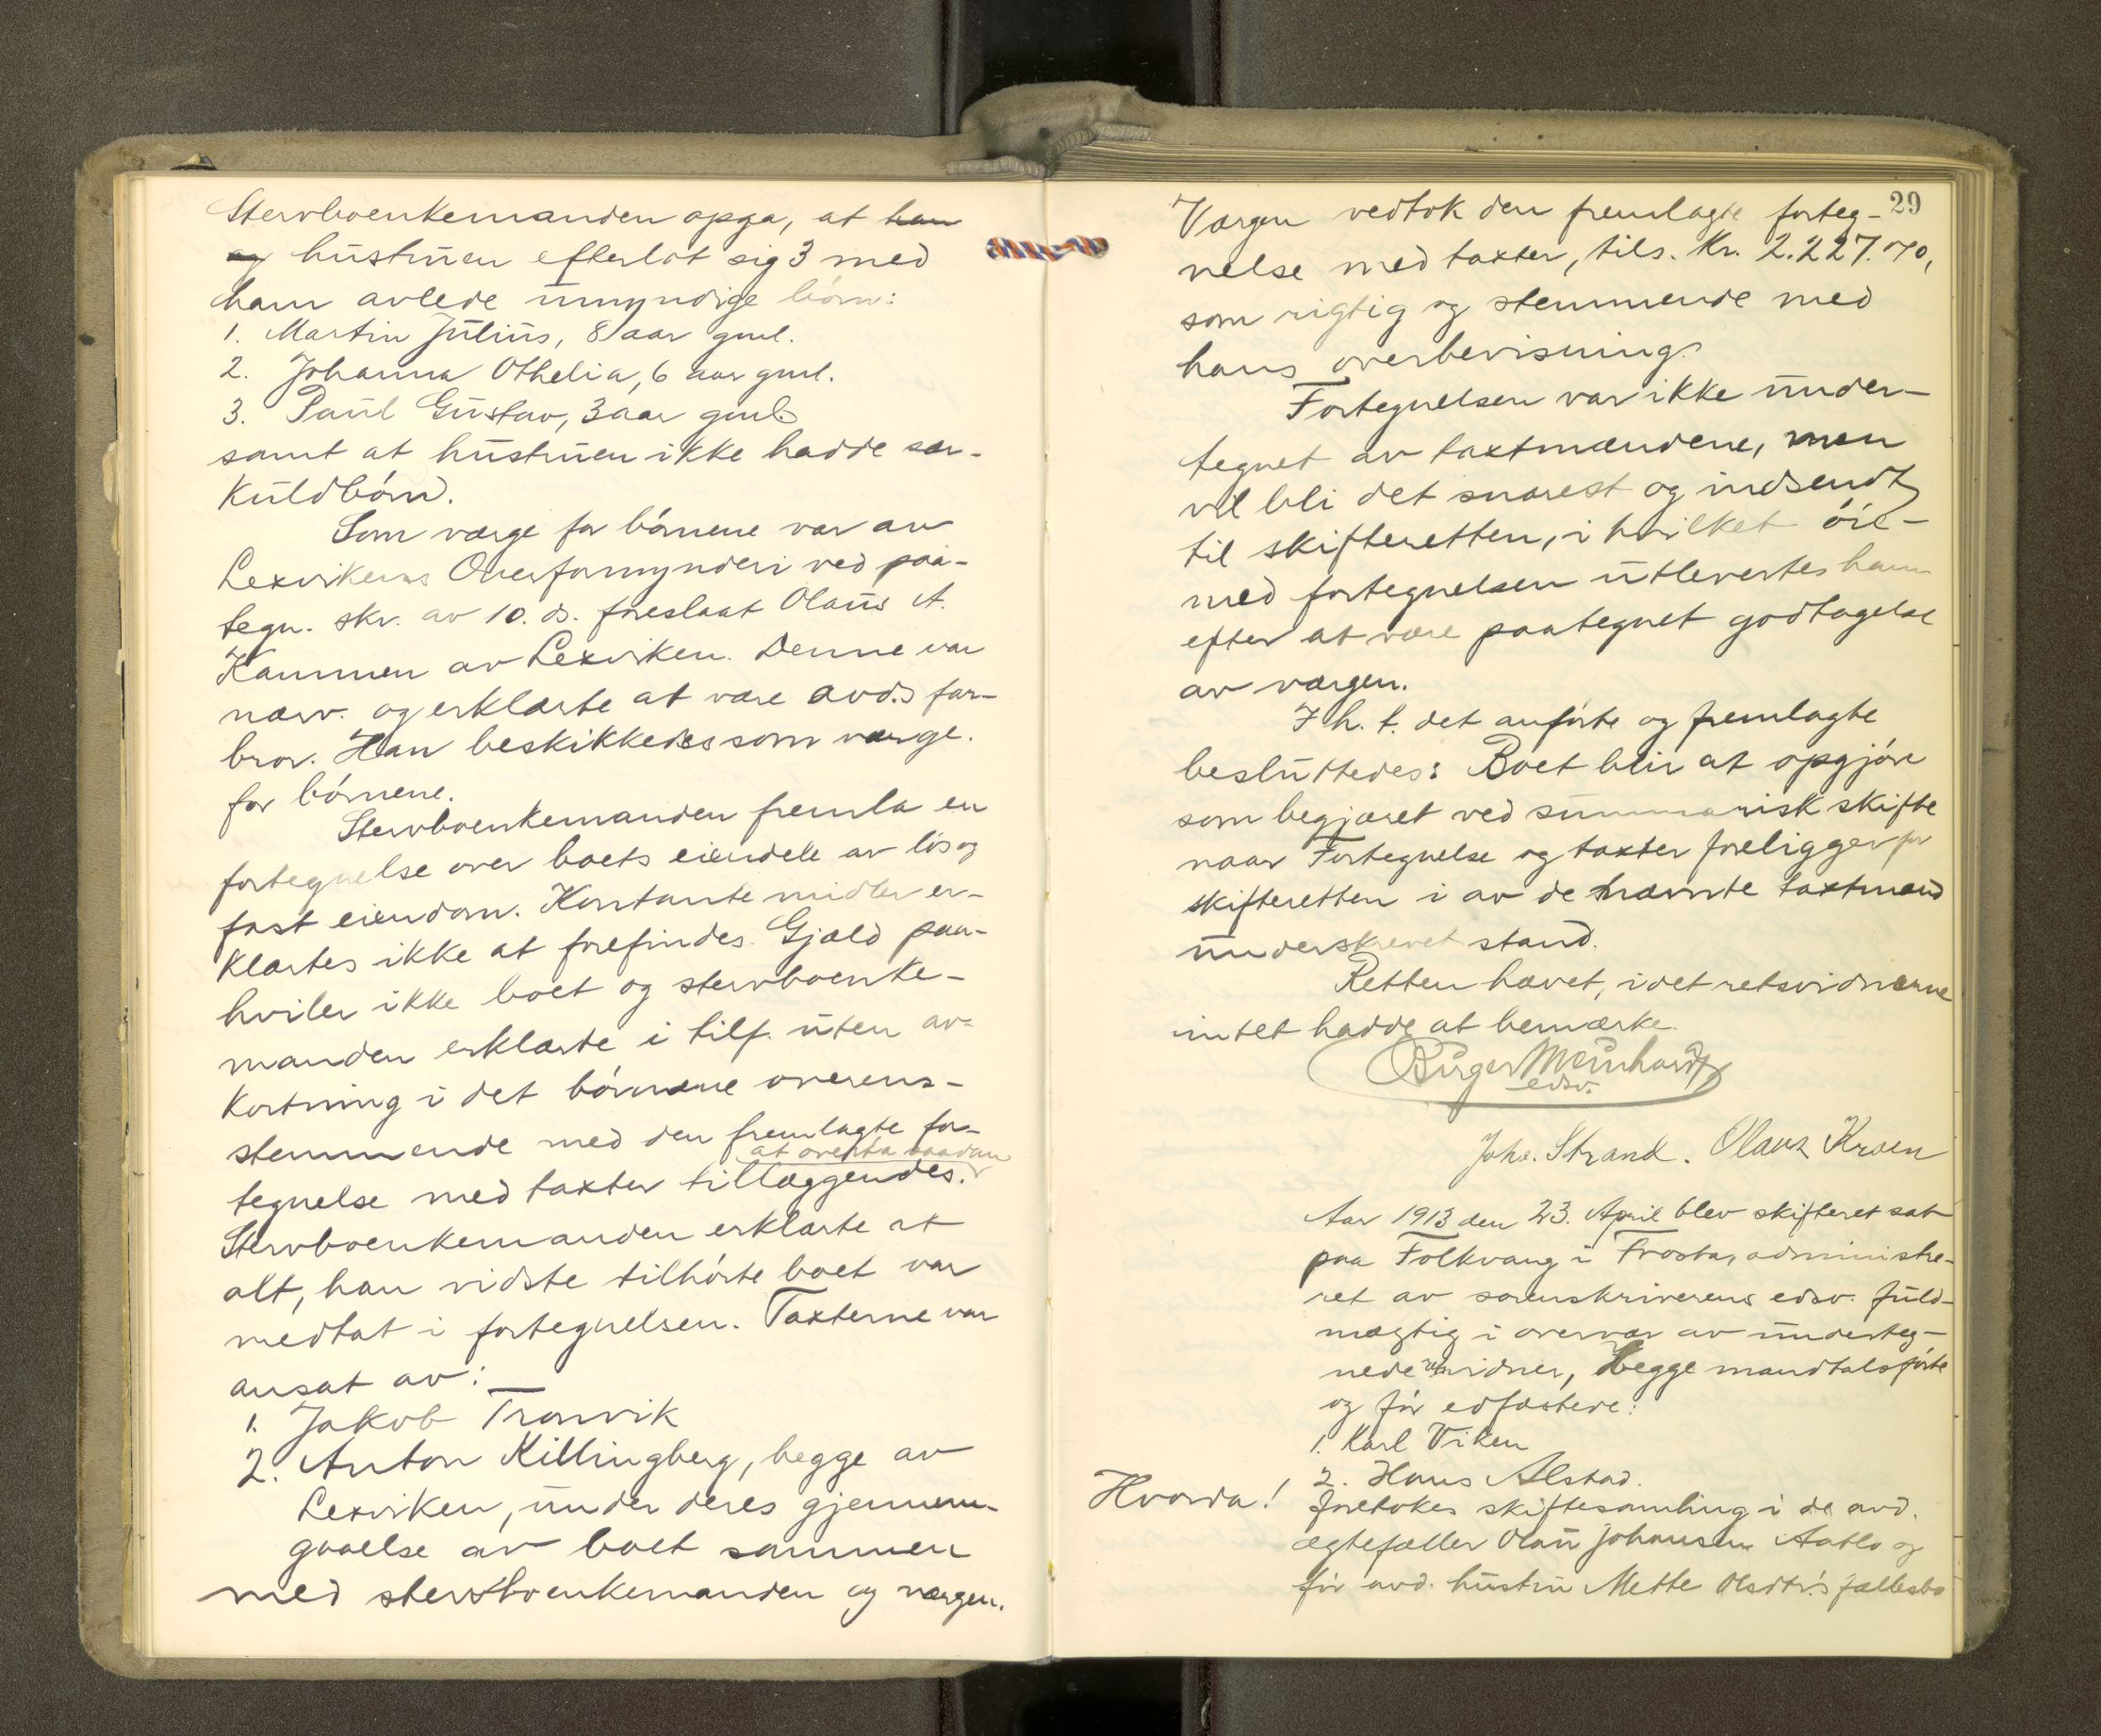 Stervboenkemanden opga, at han
og hustruen efterlot sig 3 med
ham avlede umyndige børn:
1. Martin Julius, 8 aar gml.
2. Johanna Othelia, 6 aar gml.
3. Paul Gustav, 3 aar gml
samt at hustruen ikke hadde sær-
kuldbørn.
Som værge for børnene var av
Lexvikens Overformynderi ved paa-
tegn. skr. av 10. ds. foreslaat Olaus A.
Kammen av Lexviken. Denne var
nærv. og erklærte at være avd.s far-
bror. Han beskikkedes som værge.
for børnene.
Stervboenkemanden fremla en
fortegnelse over boets eiendele av løs og
fast eiendom. Kontante midler er-
klærtes ikke at forefindes. Gjæld paa-
hviler ikke boet og stervboenke-
manden erklærte i tilf. uten av-
kortning i det børnene overens-
stemmende med den fremlagte for-
at overta saadan
tegnelse med taxter tillæggendes.
Stervboenkemanden erklærte at
alt, han vidste tilhørte boet var
medtat i fortegnelsen. Taxterne var
ansat av:
1. Jakob Tronvik
2. Anton Killingberg, begge av
Lexviken, under deres gjennem-
gaaelse av boet sammen
med stervboenkemanden og værgen.
29
Værgen vedtok den fremlagte forteg-
nelse med taxter, tils. Kr. 2.227.70,
som rigtig og stemmende med
hans overbevisning.
Fortegnelsen var ikke under-
tegnet av taxtmændene, men
vil bli det snarest og indsendt
til skifteretten, i hvilket øie-
med fortegnelsen utlevertes ham
efter at være paategnet godtagelse
av værgen.
I h. t. det anførte og fremlagte
besluttedes: Boet blir at opgjøre
som begjæret ved summarisk skifte
naar Fortegnelse og taxter foreligger for
skifteretten i av de nævnte taxtmænd
underskrevet stand.
Retten hævet, idet retsvidnerne
intet hadde at bemærke.
Birger Meinhardt
edsv.
Johs. Strand. Olaus Kroen
Aar 1913 den 23. April blev skifteret sat
paa Folkvang i Frosta, administre-
ret av sorenskriverens edsv. fuld-
mægtig i overvær av underteg-
nede vidner, begge mandtalsførte
og før edfæstede:
1. Karl Viken
2. Hans Alstad.
Hvorda!
foretokes skiftesamling i de avd.
ægtefæller Olau Johansen Aatlo og
før avd. hustru Mette Olsdtr's fællesbo